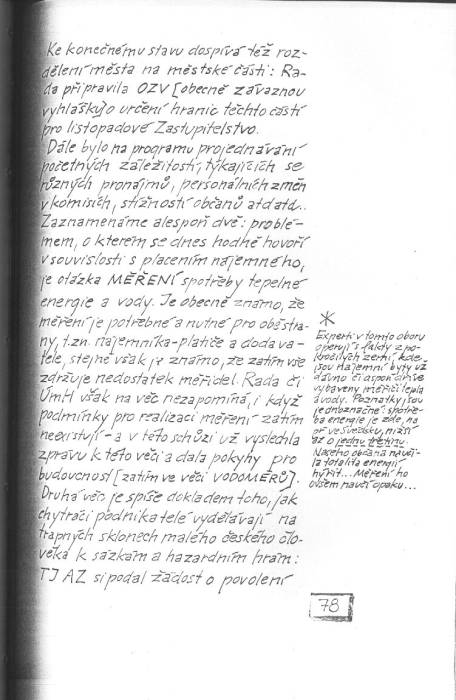 Ke konečnému stavu dospívá též roz-
dělení města na městské části: Ra-
da připravila OZV [obecně závaznou
vyhlášku] o určení hranic těchto částí
pro listopadové Zastupitelstvo.
Dále bylo na programu projednávání
početných záležitostí, týkajících se
různých pronájmů, personálních změn
v komisích, stížností občanů atd atd..
Zaznamenáme alespoň dvě: problé-
mem, o kterém se dnes hodně hovoří
v souvislosti s placením nájemného,
je otázka MĚŘENÍ spotřeby tepelné
energie a vody. Je obecně známo, že
měření je potřebné a nutné pro obě stra-
ny, t.zn. nájemníka-plátiče a dodava-
tele, stejně však je známo, že zatím vše
zdržuje nedostatek měřidel. Rada či
ÚmH však na věc nezapomíná, i když
podmínky pro realizaci měření zatím
neexistují - a v této schůzi už vyslechla
zprávu k této věci a dala pokyny pro
budoucnost [zatím ve věci VODOMĚRŮ].
Druhá věc je spíše dokladem toho, jak
chytráci podnikatelé vydělávají na
trapných sklonech malého českého člo-
věka k sázkám a hazardním hrám:
TJ AZ si podal žádost o povolení
*
Experti v tomto oboru
operují s fakty z po-
kročilých zemí, kde
jsou nájemní byty už
dávno či aspoň dříve
vybaveny měřiči tepla
a vody. Poznatky jsou
jednoznačné: spotře-
ba energie je zde, na
př ve Švédsku, nižší
až o jednu třetinu.
Našeho občana navči-
la totalita energií
hýřit... Měření ho
ovšem naučí opaku...
78